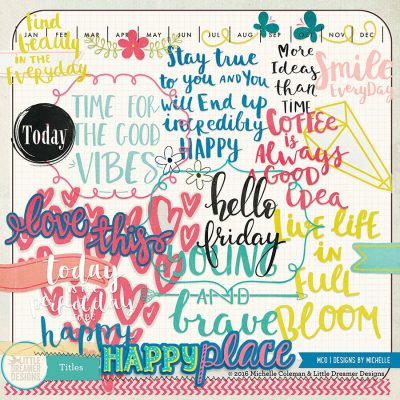 Find
beauty
IN THE
Everyday
JAN FEB MAR APR MAY JUN JUL AUG SEP OCT NOV DEC
Stay true
to you AND YOU
will End up
incredibly
HAPPY
More
Ideas
than
TIME
Smile
EVERYDAY
Today
TIME FOR
THE GOOD
VIBES
COFFEE
is
Always
A
GOOD
IDEA
love this
hello
friday
YOUNG
AND
brave
LIVE LIFE
IN
FULL
BLOOM
today
is a
to be
happy
HAPPY place
LITTLE
DREAMER
DESIGNS
Titles
MCO | DESIGNS BY MICHELLE
© 2016 Michelle Coleman & Little Dreamer Designs